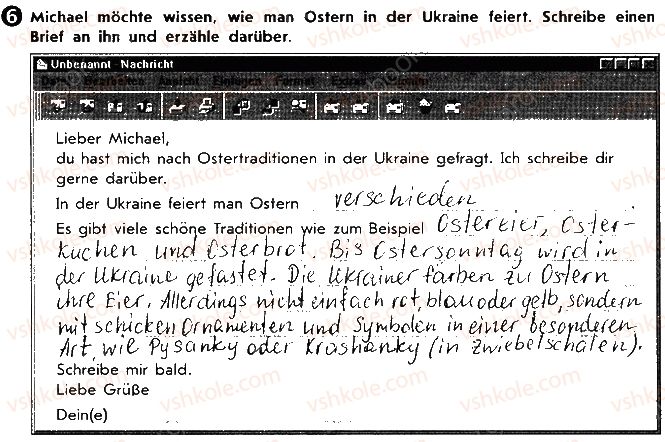 6 Michael möchte wissen, wie man Ostern in der Ukraine feiert. Schreibe einen
Brief an ihn und erzähle darüber.
Unbenannt - Nachricht
Bearbeiten Ansicht Einfügen Format Extras
Lieber Michael,
du hast mich nach Ostertraditionen in der Ukraine gefragt. Ich schreibe dir
gerne darüber.
In der Ukraine feiert man Ostern verschieden
Es gibt viele schöne Traditionen wie zum Beispiel Ostereier, Oster-
kuchen und Osterbrot. Bis Ostersonntag wird in
der Ukraine gefastet. Die Ukrainer färben zu Ostern
ihre Eier. Allerdings nicht einfach rot, blau oder gelb, sondern
mit schicken Ornamenten und Symbolen in einer besonderen
Art, wie Pysanky oder Krashanky (in Zwiebelschalen).
Schreibe mir bald.
Liebe Grüße
Dein(e)